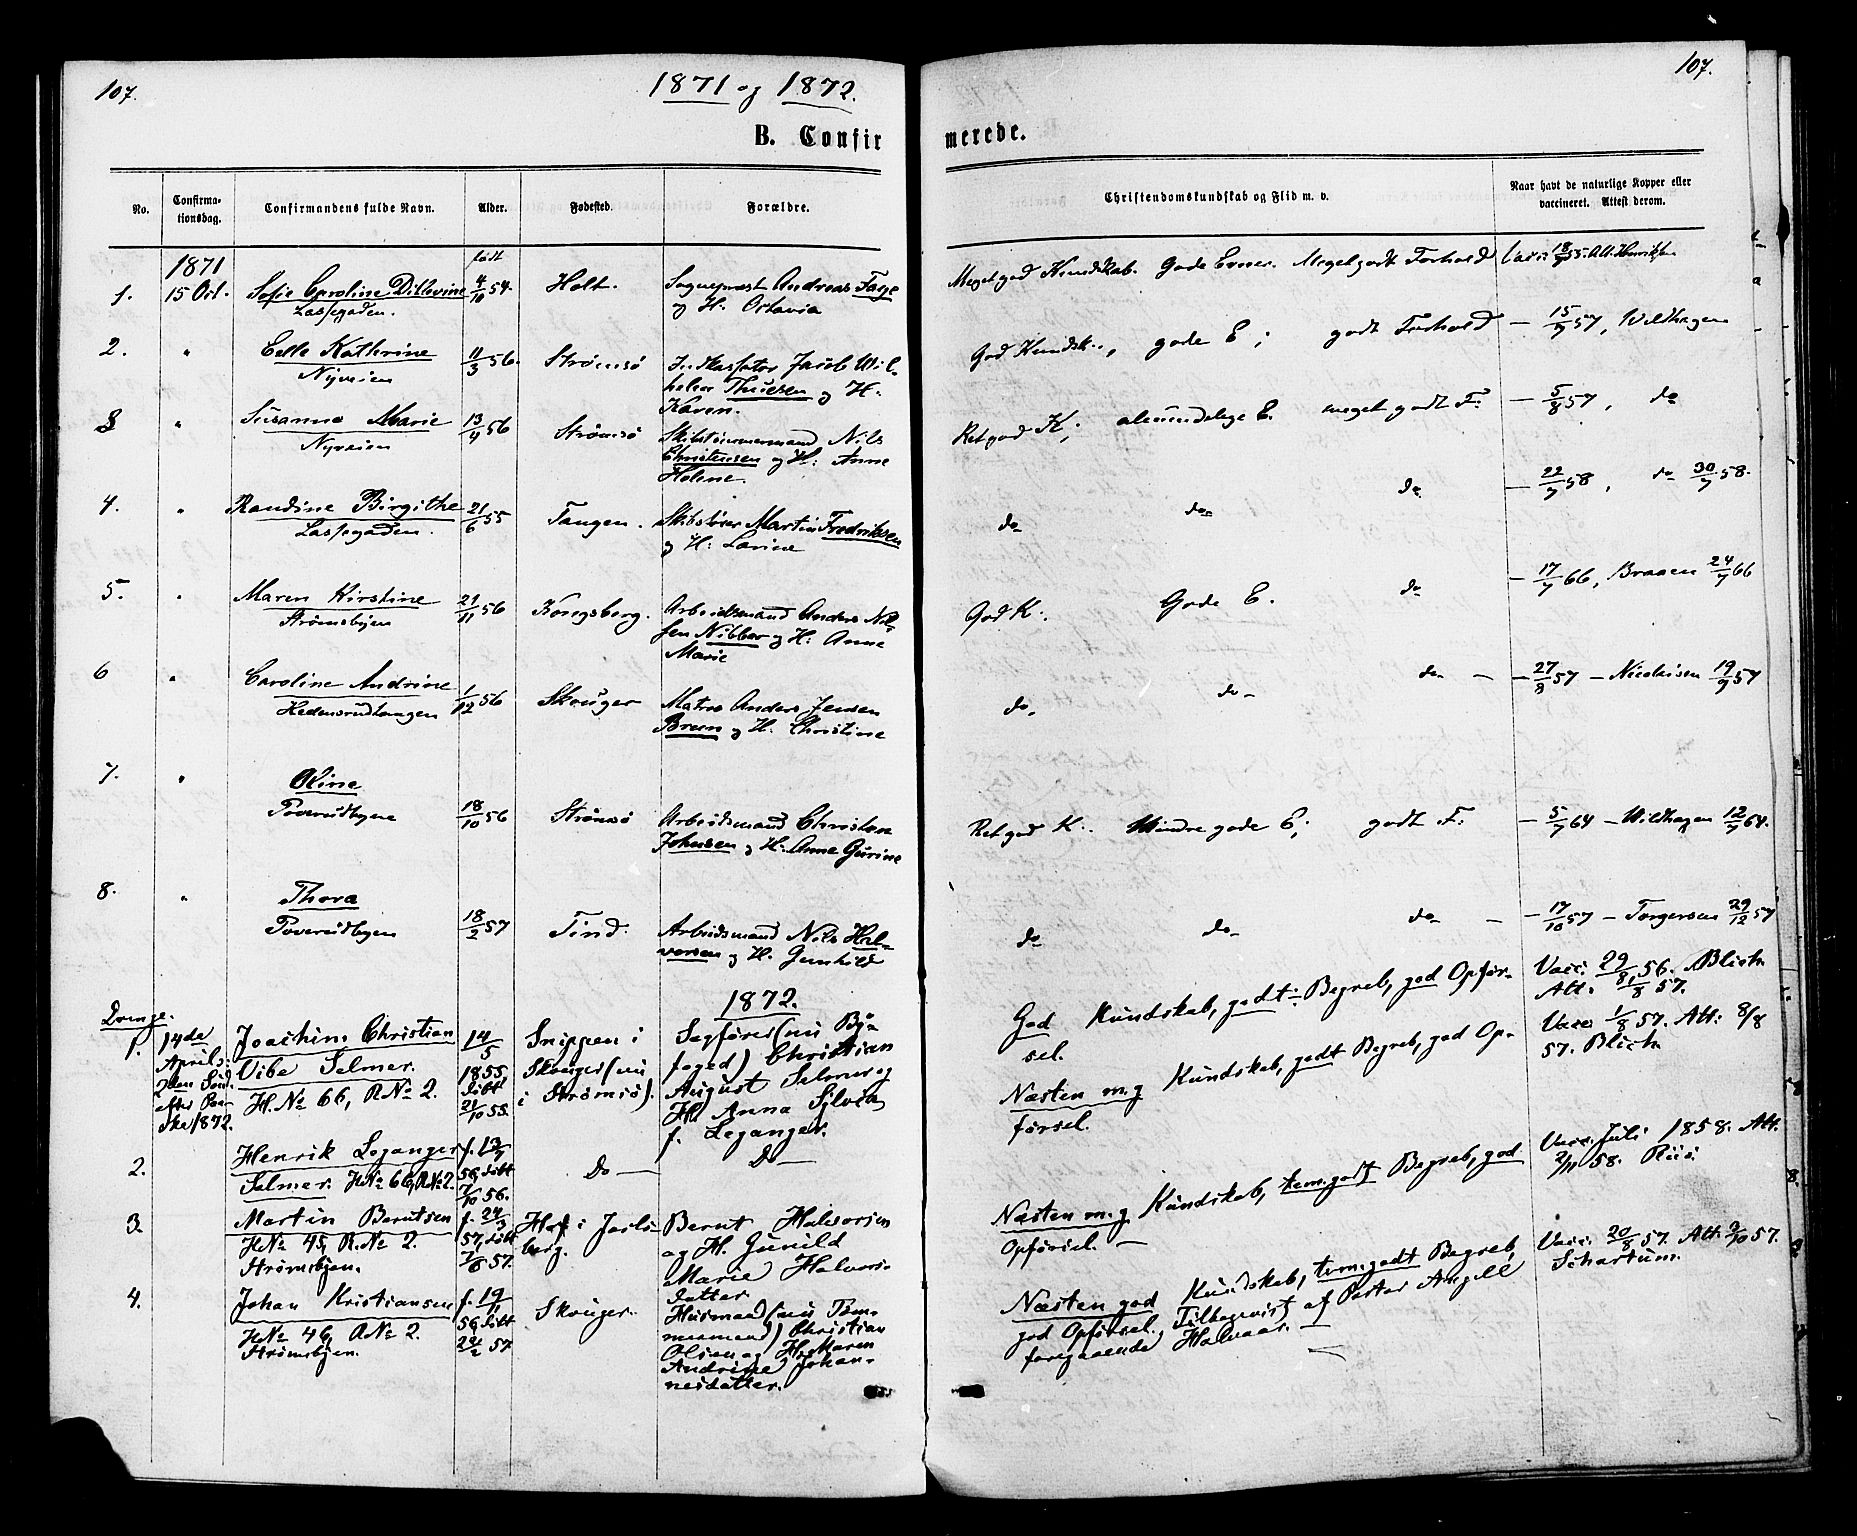 107.
1871 og 1872.
107.
B. Confirmerede.
No.
Confirma-
tionsdag.
Confirmandens fulde Navn.
Alder.
Fødested.
Forældre.
Christendomskundskab og Flid m. v.
Naar havt de naturlige Kopper eller
vaccineret. Attest derom.
1871
født
1. 15 Oct. Sofie Caroline Ditlevine 4/10 54. Holt. Sognepræst Andreas Faye
Lassegaden. og H. Octavia
Meget god Kundskab. Gode Evner. Meget godt Forhold Vacc: 18/7 55. Att. Henriksen
2. " Celle Kathrine 11/3 56. Strømsö Indkassator Jacob Wil-
Nyveien helm Thuesen og H.
Karen.
God Kundsk., gode E; godt Forhold — 15/7 57, Wildhagen
3 " Susanne Marie 13/4 56 Strømsö Skibstömmermand Nils
Nyveien Christensen og H: Anne
Helene.
Ret god K; almindelige E. meget godt F: — 5/8 57, do
4. " Randine Birgithe 21/6 55 Tangen. Martin Fredriksen
Lassegaden. og H: Lavine
do do do — 22/7 58, do 30/7 58.
5. " Maren Kirstine 21/11 56 Kongsberg. Arbeidsmand Anders Nil-
Strømsbyen sen Nibber og H: Anne
Marie
God K. Gode E. do — 17/7 66, Braaen 24/7 66
6 " Caroline Andrine 1/12 56 Skouger Matros Anders Jensen
Hedensrudhaugen Bruun og H. Christine
do. do— do— — 27/8 57 — Nicolaisen 19/9 57
7. " Oline
Toverudbyen 18/10 56 Strømsö Arbeidsmand Christen
Johnsen og H. Anne Gurine
Ret god K. Mindre gode E; godt F. — 5/7 64 — Wildhagen 12/7 64.
8. " Thora
Toverudbyen 18/2 57 Tind. Arbeidsmand Nils Hal-
vorsen og H. Gunhild
do do— do— — 17/10 57 — Torgersen 29/12 57
1872.
Drenge.
1. 14de Joachim Christian 14/5 Snippen i Sagfører (nu By-
April: Vibe Selmer. 1855 Skouger (nu foged) Christian
2den Sönd. H. No 66, R No 2. döbt i Strömsö). August Selmer og
efter Paa- 21/10 55. H. Anna Sylvia
ske 1872. f. Leganger.
God Kundskab, godt Begreb, god Opför-
sel.
Vacc: 29/8 56. Blich
Att. 1/8 57.
2. Henrik Leganger f. 13/7 Do— Do—
Selmer. H No 66, R No 2. 56, döbt
7/10 56.
Næsten m.g Kundskab, godt Begreb, god Op-
førsel.
Vacc 1/8 57. Att: 8/8
57. Blich
3. Martin Berntsen f. 24/3 Hof i Jarls- Bernt Halvorsen
H No 45, R. No 2. 57, döbt berg. og H. Gunild
Strømsbyen. 7/6 57. Marie Halvors-
datter
Næsten m.g Kundskab, tem. godt Begreb, god
Opförsel. —
Vacc. Juli 1858. Att.
2/11 58. Riis.
4. Johan Kristiansen f. 19/11 Skouger. Husmand (nu Töm-
H No 46, R No 2. 56 döbt mermand) Christian
Strømsbyen. 22/2 57. Olsen og H. Maren
Andrine Johan-
nesdatter.
Næsten god Kundskab, tem. godt Begreb,
god Opförsel. Tilbagevist af Pastor Angell
foregaaende Halvaar. —
Vacc. 20/8 57. Att. 2/10 57.
Schartum.